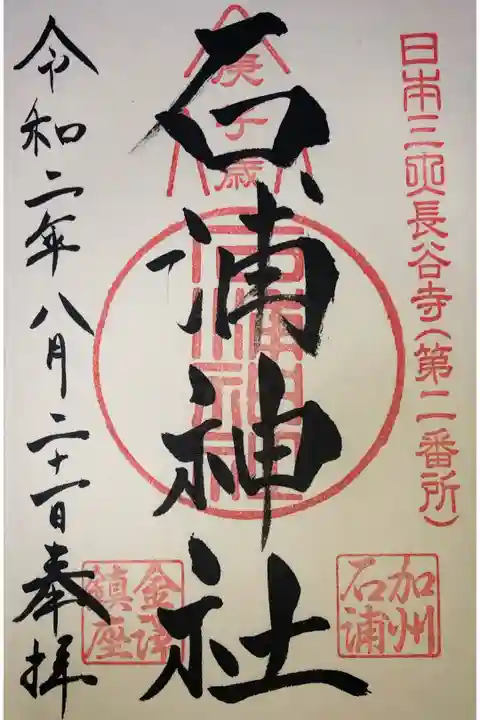 日本三 長谷寺(第二番所)
加州
石浦
庚子歳
石浦神社
石浦神社
金澤
鎮座
令和二年八月二十一日奉拝